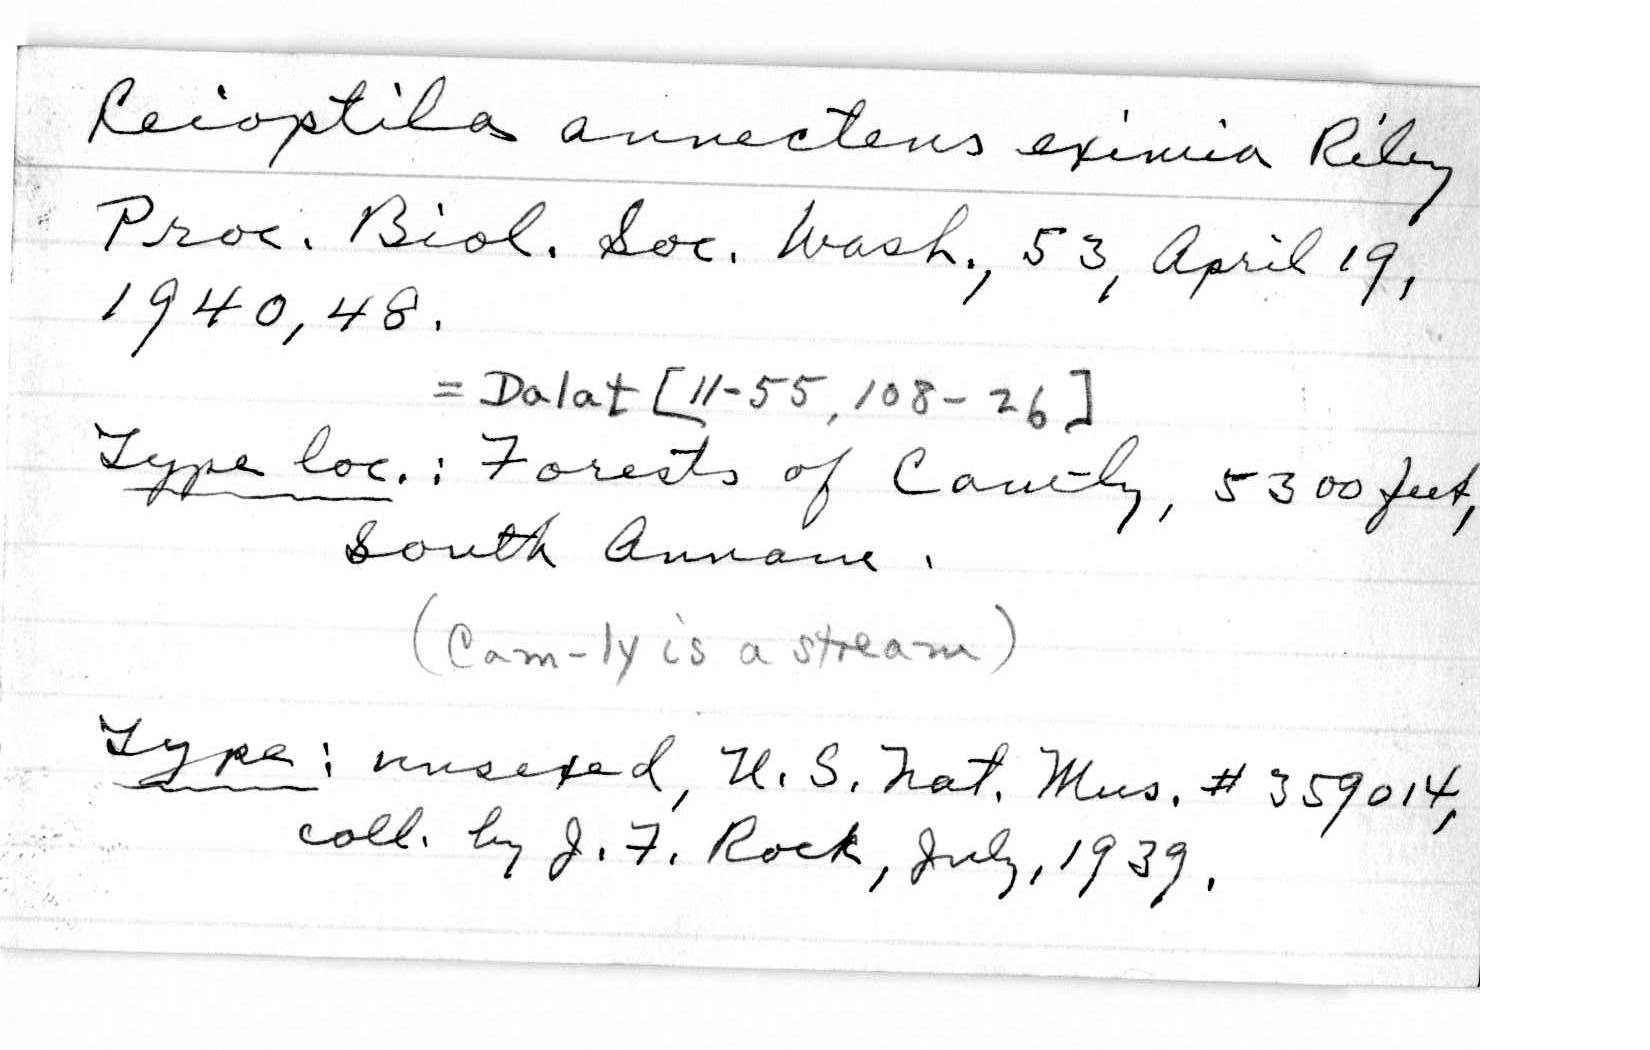 Leioptila annectens eximia Riley
Proc. Biol. Soc. Wash., 53, April 19,
1940, 48.
= Dalat [11-55, 108-26]
Type loc.: Forests of Cam-ly, 5300 feet,
South Annam.
(Cam-ly is a stream)
Type: unsexed, U. S. Nat. Mus. # 359014,
coll. by J. F. Rock, July, 1939.